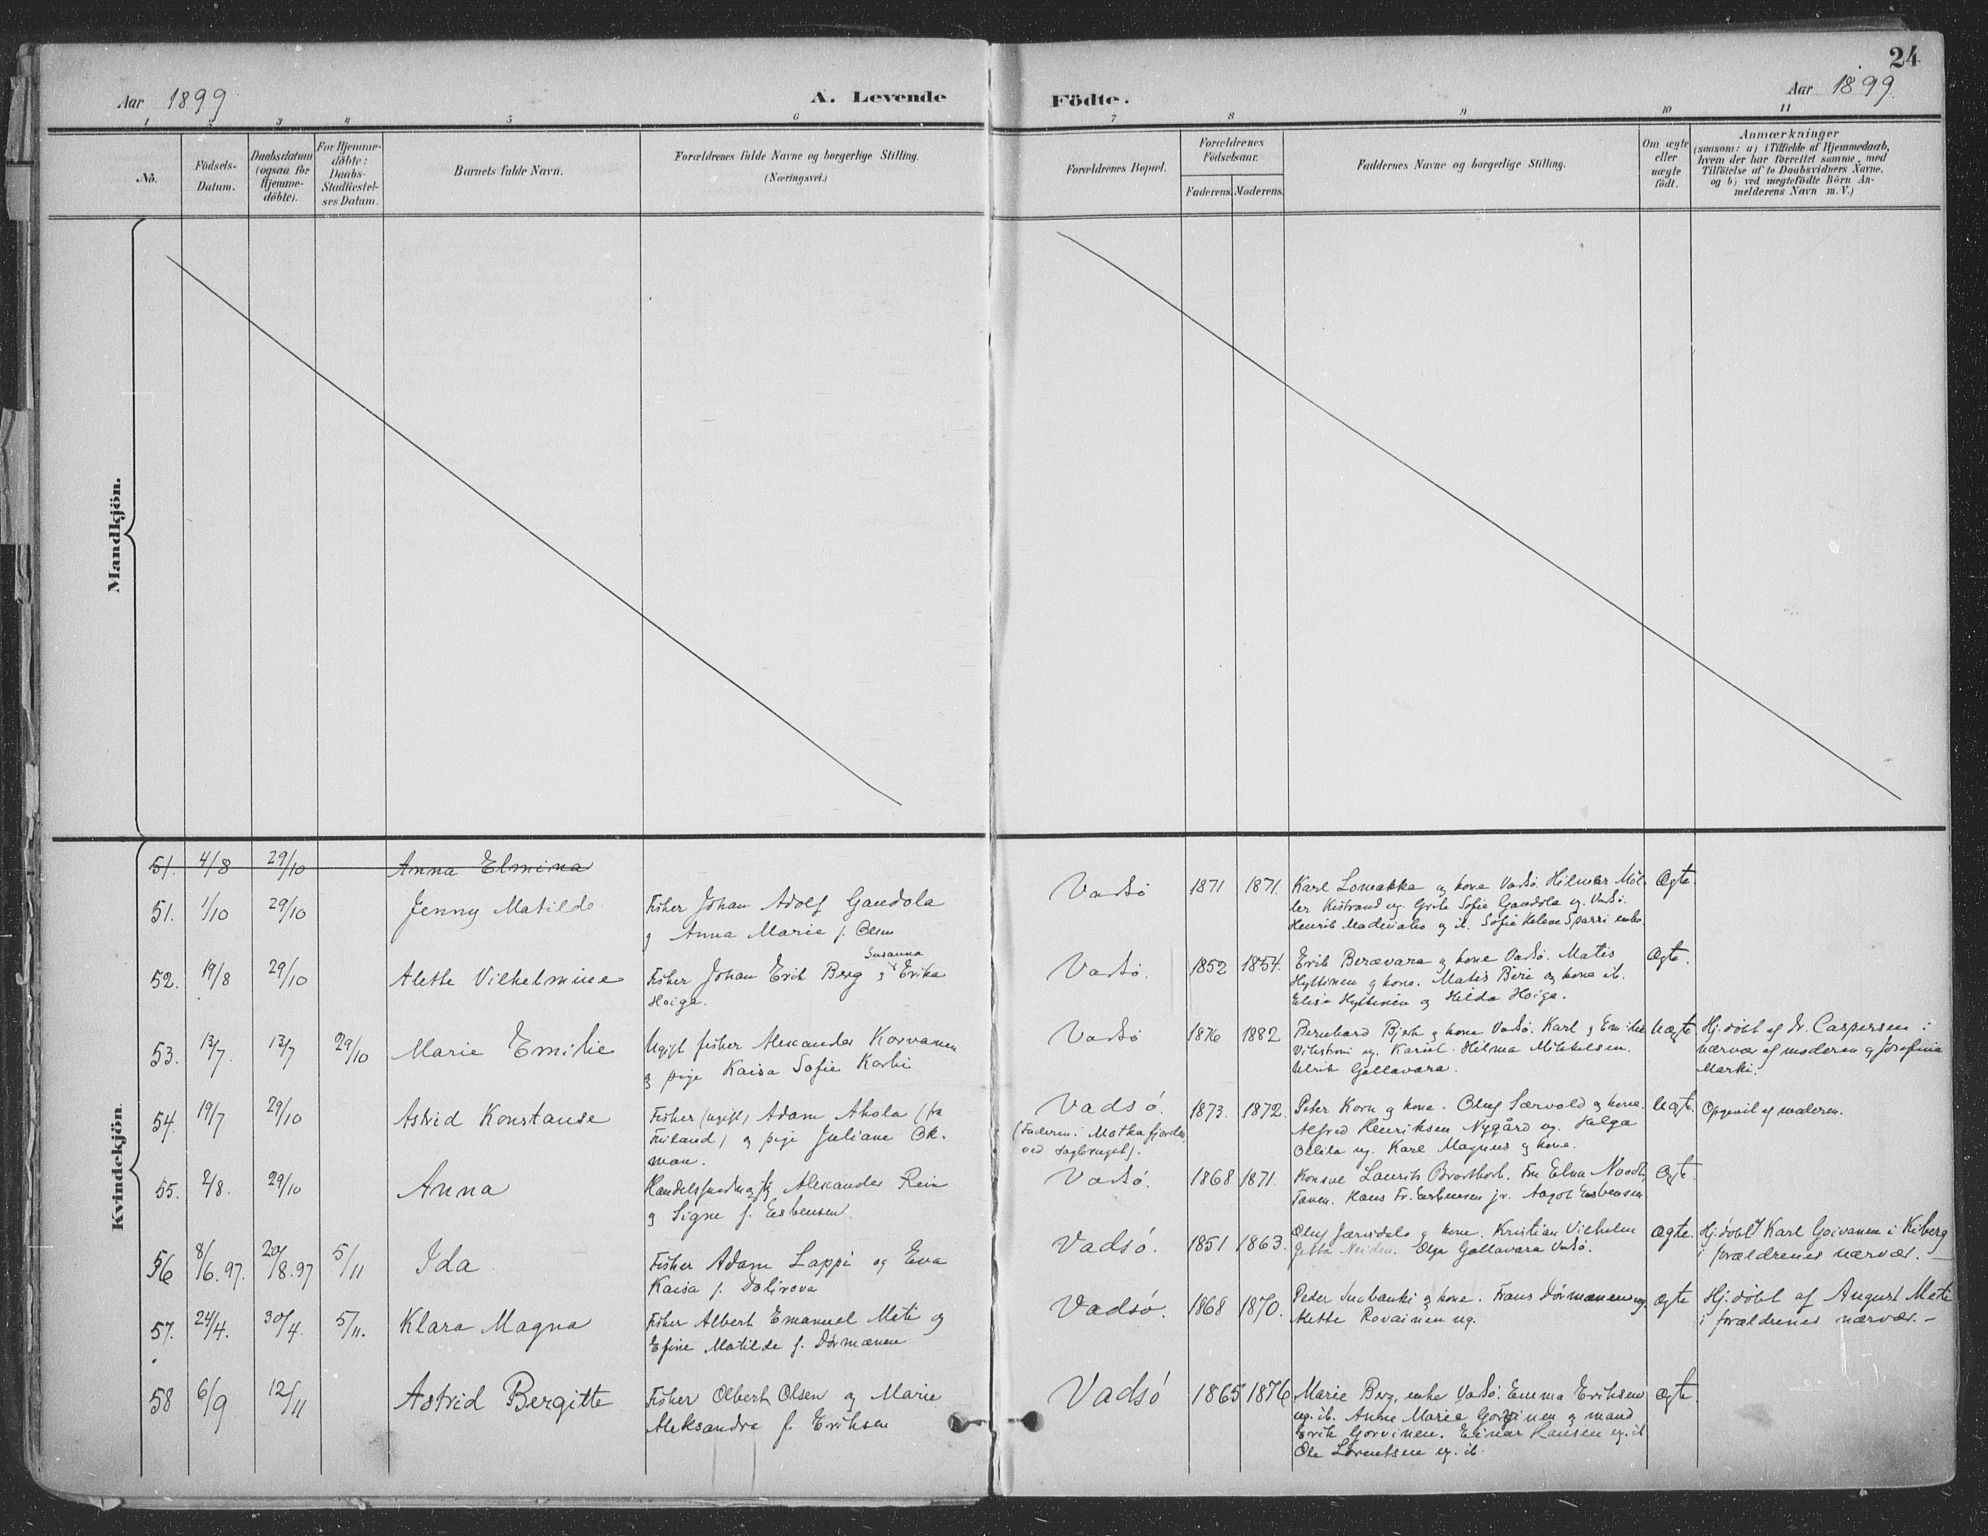 24
Aar 1899
A. Levende
Födte.
Aar 1899
1 2 3 4 5 6 7 8 9 10 11
No.
Födsels-Datum.
Daabsdatum (ogsaa for Hjemme-döbte).
For Hjemme-döbte: Daabs-Stadfæstel-ses Datum.
Barnets fulde Navn.
Forældrenes fulde Navne og borgerlige Stilling.
(Næringsvei.)
Forældrenes Bopæl.
Forældrenes Födselsaar.
Faderens. Moderens.
Faddernes Navne og borgerlige Stilling.
Om ægte eller uægte födt.
Anmærkninger
(saasom: a) i Tilfælde af Hjemmedaab,
hvem der har forrettet samme, med
Tilföielse af to Daabsvidners Navne.
og b) ved uægtefödte Börn An-
melderens Navn m. V.)
Mandkjön.
Kvindekjön.
51. 4/8 29/10 Anna Elmina
51. 1/10 29/10 Jenny Matilde
Fisker Johan Adolf Gandola
g Anna Marie f. Olsen
Vadsö 1871 1871.
Karl Lomakka og kone Vadsö. Hilmar Möl-
ler Kistrand ug. Grete Sofie Gandola ug. Vadsö.
Henrik Madinaho ug ib. Sofie Helene Sparri enke
Ægte.
52. 19/8 29/10 Alette Vilhelmine
Susanna
Fisker Johan Erik Berg g Erika
Hoiga.
Vadsö. 1852 1854.
Erik Berævara g kone Vadsö. Matis
Hyttinen g kone. Matis Beri og kone ib.
Elisa Hyttinen og Hilda Hoiga.
Ægte.
53. 13/7. 13/7 29/10 Marie Emilie
Ugift fisker Alexander Korvanen
g pige Kaisa Sofie Korhi
Vadsö 1876 1882
Bernhard Bjerk g kone Vadsö. Karl g Emilie
Vikström ug. Kariel. Hilma Mikkelsen.
Ulrik Gallavara.
Uægte
Hj. döbt af Dr. Caspersen i
nærvær af moderen g Josefine
Marki.
54. 19/7 29/10 Astrid Konstanse
Fisker (ugift) Adam Ahola (fra
Finland) g pige Juliane Ok-
man.
Vadsö.
(Faderen i Motkafjorden
ved Sagbruget).
1873. 1872.
Peter Korn g kone. Oluf Særvold og kone.
Alfred Henriksen Nygård ug. Helga
ug. Karl Magnus g kone.
Uægt.
Opgivit af moderen.
55. 2/8. 29/10 Anna
Alexander Rein
g Signe f. Esbensen.
Vadsö. 1868 1871.
Konsul Laurits Brodtkorb. Frk Elna Noodt,
Tanen. Hans Fr. Esbensen jr. Aagot Esbensen
Ægt.
56 8/6.97. 20/8.97 5/11 Ida
Fisker Adam Lappi og Eva
Kaisa f. Dolirova
Vadsö. 1851 1863.
Oluf Jærisdal g kone. Kristian Vilhelm
Jetta Neiden. Olga Gallavara Vadsö.
Ægte.
Hj. döbt Karl Goivanen i Kiberg
i forældrenes nærvær. —
57. 24/4. 30/4. 5/11. Klara Magna
Fisker Albert Emanuel Meti og
Efine Matilde f. Dörmænen
Vadsö. 1868 1870.
Peder Snobanki g kone. Frans Dörmænen ug.
Alette Rovainen ug.
Ægte
Hj. döbt af August Meti
i forældrenes nærvær. —
58 6/9 12/11 Astrid Bergitte
Fisker Olbert Olsen og Marie
Aleksandra f. Eriksen
Vadsö 1865 1876
Marie Berg, enke Vadsö. Emma Eriksen
ug. ib. Anne Marie Gorvinen g mand
Erik Gorvinen. Einar Hansen ug. ib
Ole Lorentsen ug. ib.
Ægte.